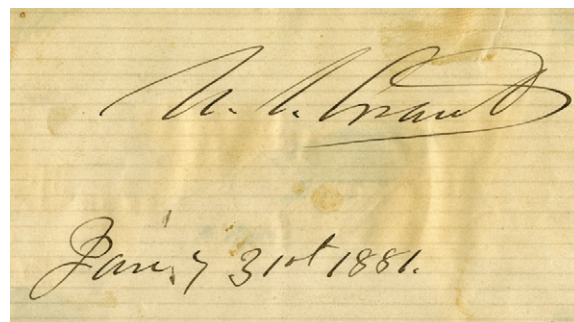 U. S. Grant
Jan'y 31st 1881.